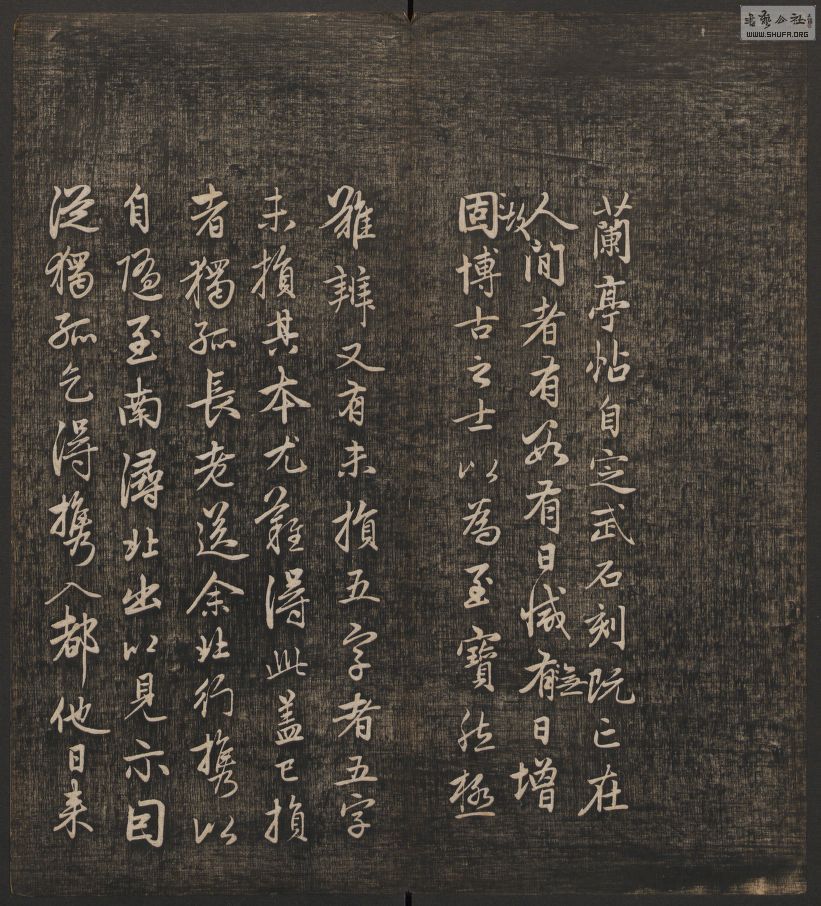 蘭亭帖自定武石刻既亡在
人間者有數有日減有無日增
故固博古之士以為至寶然極
難辨又有未損五字者五字
未損其本尤難得此蓋已損
者獨孤長老送余北行攜以
自隨至南潯北出以見示因
從獨孤乞得攜入都他日来
書藝公社
WWW.SHUFA.ORG